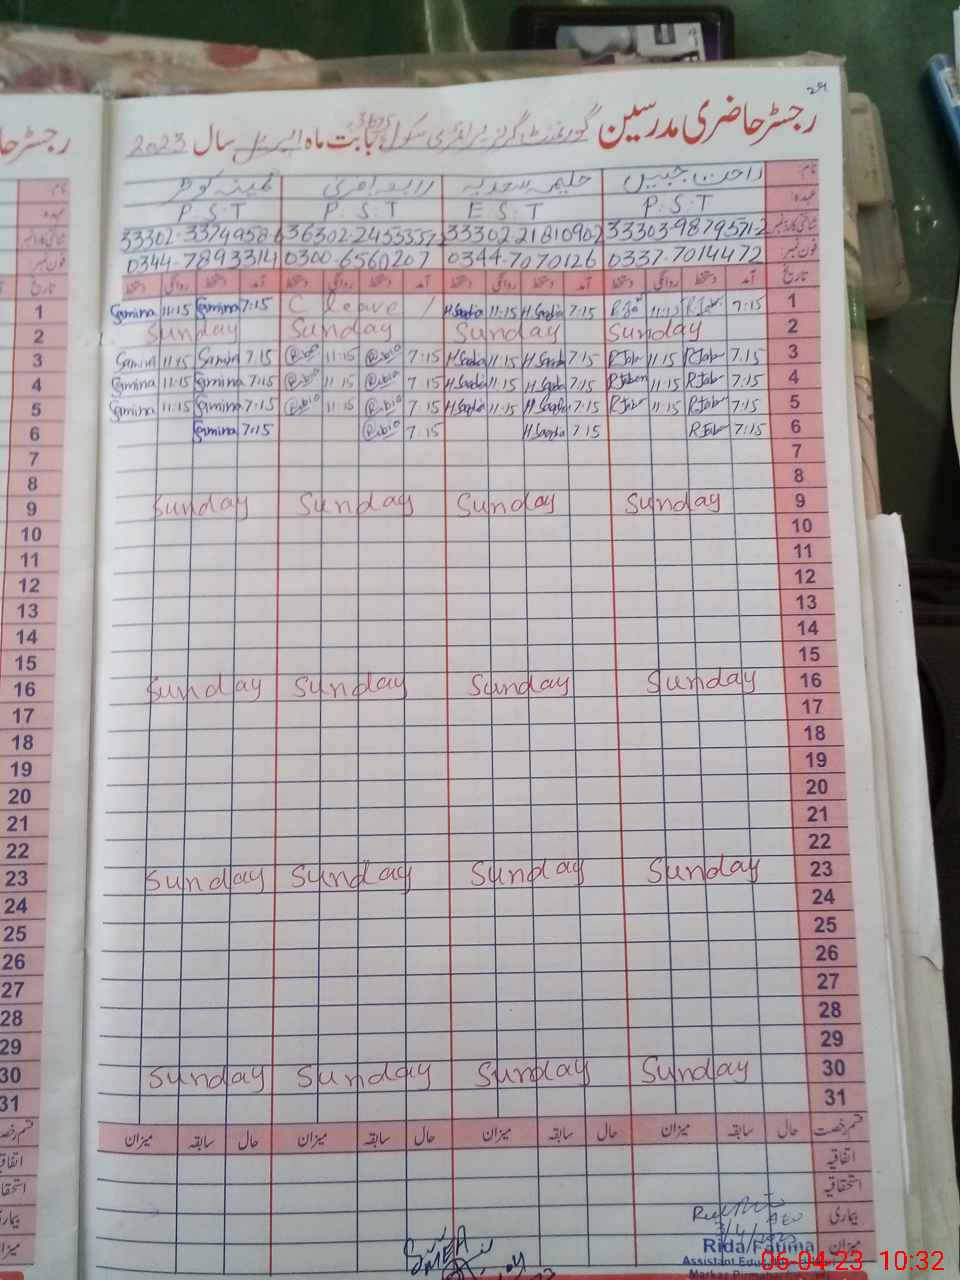 29
رجسٹر حاضری مدرسین گورنمنٹ گرلز پرائمری سکول 3bzs بابت ماہ اپریل سال 2023
نام راحت جبیں حلیمہ سعدیہ ثمینہ کوثر
عہدہ P.S.T E.S.T P.S.T P.S.T
شناختی کارڈ نمبر 33303-9879571-2 33302-2181090-2 36302-2453335 33302-3374958-6
فون نمبر 0337-7014472 0344-7070126 0300-6560207 0344-7893314
تاریخ آمد دستخط روانگی دستخط آمد دستخط روانگی دستخط آمد دستخط روانگی دستخط آمد دستخط روانگی دستخط
1 Samina 11:15 Samina 7:15 C leave / H.Sadia 11:15 H.Sadia 7:15 11:15 7:15 1
2 Sunday Sunday Sunday Sunday 2
3 Samina 11:15 Samina 7:15 11:15 7:15 H.Sadia 11:15 H.Sadia 7:15 11:15 7:15 3
4 Samina 11:15 Samina 7:15 11:15 7:15 H.Sadia 11:15 H.Sadia 7:15 11:15 7:15 4
5 Samina 11:15 Samina 7:15 11:15 7:15 H.Sadia 11:15 H.Sadia 7:15 11:15 7:15 5
6 Samina 7:15 7:15 H.Sadia 7:15 7:15 6
7 7
8 8
9 Sunday Sunday Sunday Sunday 9
10 10
11 11
12 12
13 13
14 14
15 15
16 Sunday Sunday Sunday Sunday 16
17 17
18 18
19 19
20 20
21 21
22 22
23 Sunday Sunday Sunday Sunday 23
24 24
25 25
26 26
27 27
28 28
29 29
30 Sunday Sunday Sunday Sunday 30
31 31
قسم رخصت حال سابقہ میزان حال سابقہ میزان حال سابقہ میزان حال سابقہ میزان
اتفاقیہ
استحقاقیہ
بیماری
میزان
AEO
Rida Fatima
Assistant Education
Markaz
06-04-23 10:32